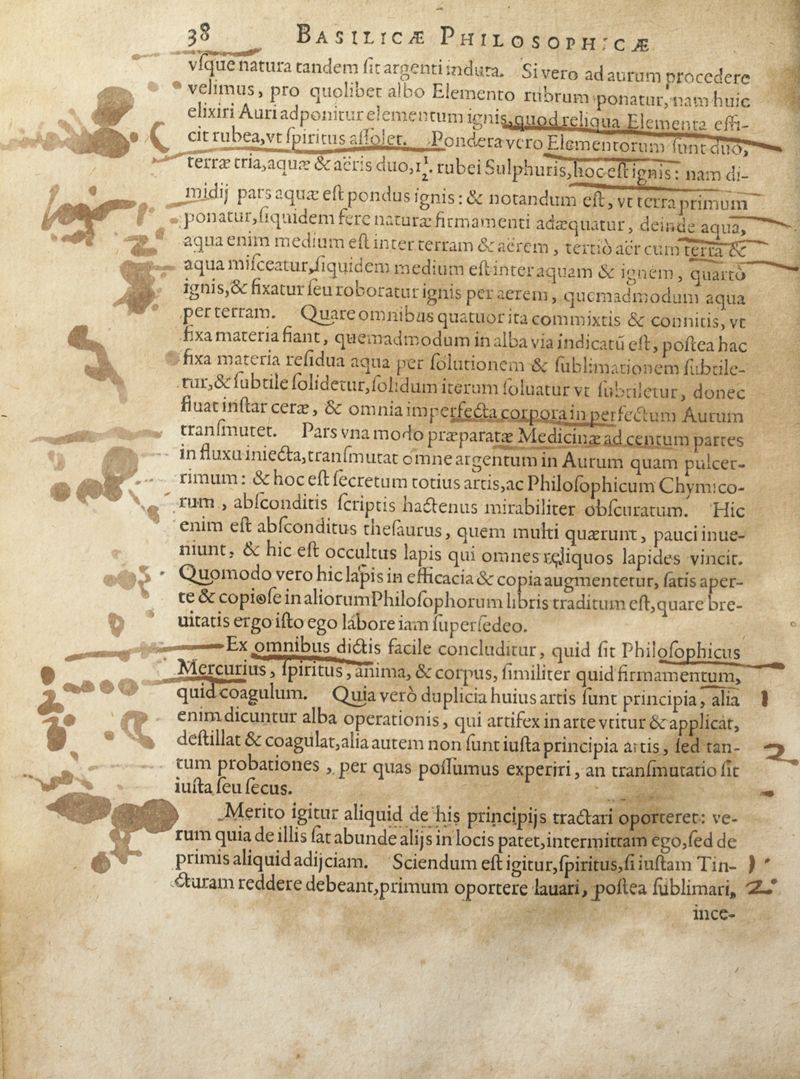 38 BASILICÆ PHILOSOPHICÆ
vſque natura tandem ſit argenti induta. Si vero ad aurum procedere
velimus, pro quolibet albo Elemento rubrum ponatur, nam huic
elixiri Auri adponitur elementum ignis, quod reliqua Elementa effi-
cit rubea, vt ſpiritus aſſolet. Pondera vero Elementorum ſunt duo,
terræ tria, aquæ & aëris duo, 1½. rubei Sulphuris, hoc eſt ignis: nam di-
midij pars aquæ eſt pondus ignis: & notandum eſt, vt terra primum
ponatur, ſiquidem fere naturæ firmamenti adæquatur, deinde aqua,
aqua enim medium eſt inter terram & aërem, tertiò aër cum terra &
aqua miſceatur, ſiquidem medium eſt inter aquam & ignem, quartò
ignis, & fixatur ſeu roboratur ignis per aerem, quemadmodum aqua
per terram. Quare omnibus quatuor ita commixtis & connitis, vt
fixa materia fiant, quemadmodum in alba via indicatū eſt, poſtea hac
fixa materia reſidua aqua per ſolutionem & ſublimationem ſubtile-
tur, & ſubtile ſolidetur, ſolidum iterum ſoluatur vt ſubtiletur, donec
fluat inſtar ceræ, & omnia imperfecta corpora in perfectum Aurum
tranſmutet. Pars vna modo præparatæ Medicinæ ad centum partes
in fluxu iniecta, tranſmutat omne argentum in Aurum quam pulcer-
rimum: & hoc eſt ſecretum totius artis, ac Philoſophicum Chymico-
rum, abſconditis ſcriptis hactenus mirabiliter obſcuratum. Hic
enim eſt abſconditus theſaurus, quem multi quærunt, pauci inue-
niunt, & hic eſt occultus lapis qui omnes reliquos lapides vincit.
Quomodo vero hic lapis in efficacia & copia augmentetur, ſatis aper-
te & copioſe in aliorum Philoſophorum libris traditum eſt, quare bre-
uitatis ergo iſto ego labore iam ſuperſedeo.
Ex omnibus dictis facile concluditur, quid ſit Philoſophicus
Mercurius, ſpiritus, anima, & corpus, ſimiliter quid firmamentum,
quid coagulum. Quia verò duplicia huius artis ſunt principia, alia
enim dicuntur alba operationis, qui artifex in arte vtitur & applicat,
deſtillat & coagulat, alia autem non ſunt iuſta principia artis, ſed tan-
tum probationes, per quas poſſumus experiri, an tranſmutatio ſit
iuſta ſeu ſecus.
Merito igitur aliquid de his principijs tractari oporteret: ve-
rum quia de illis ſat abunde alijs in locis patet, intermittam ego, ſed de
primis aliquid adijciam. Sciendum eſt igitur, ſpiritus, ſi iuſtam Tin-
cturam reddere debeant, primum oportere lauari, poſtea ſublimari,
ince-